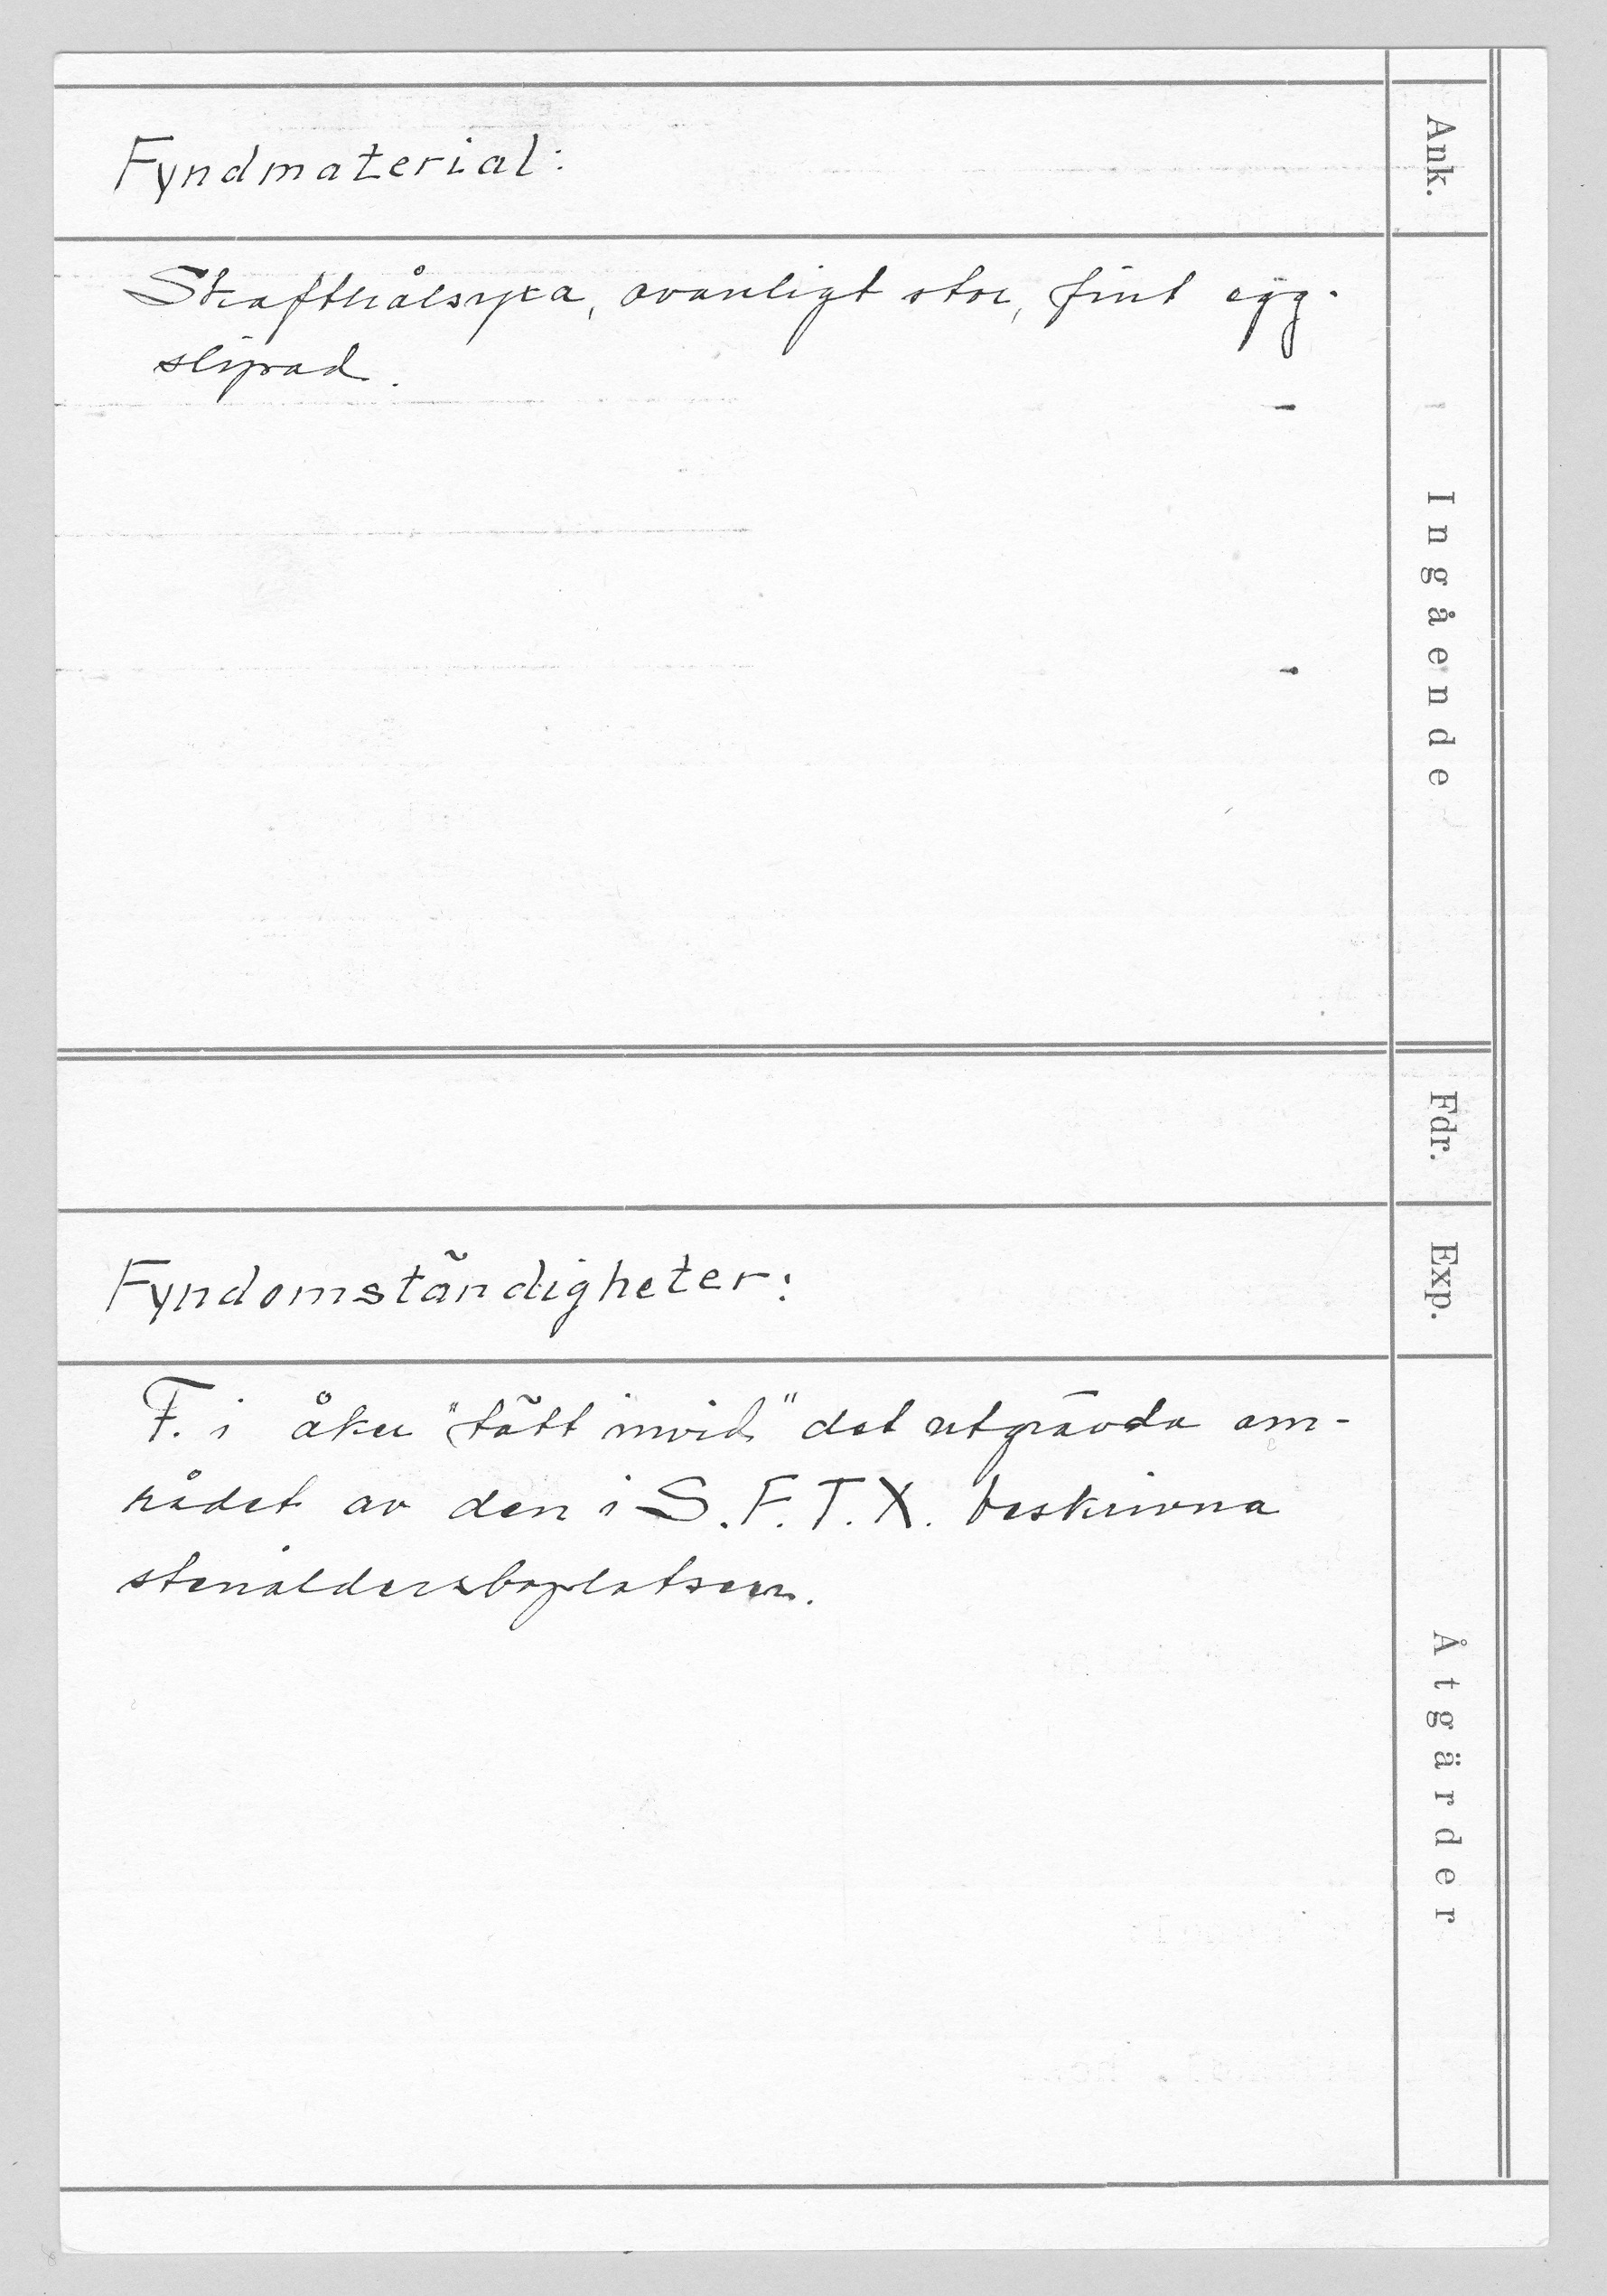 Fyndmaterial:
Skafthålsyxa, ovanligt stor, fint egg-
slipad.
Fyndomständigheter:
F. i åker "tätt invid" det utgrävda om-
rådet av den i S.F.T.X. beskrivna
stenåldersboplatsen.
Ank.
Ingående
Fdr.
Exp.
Åtgärder